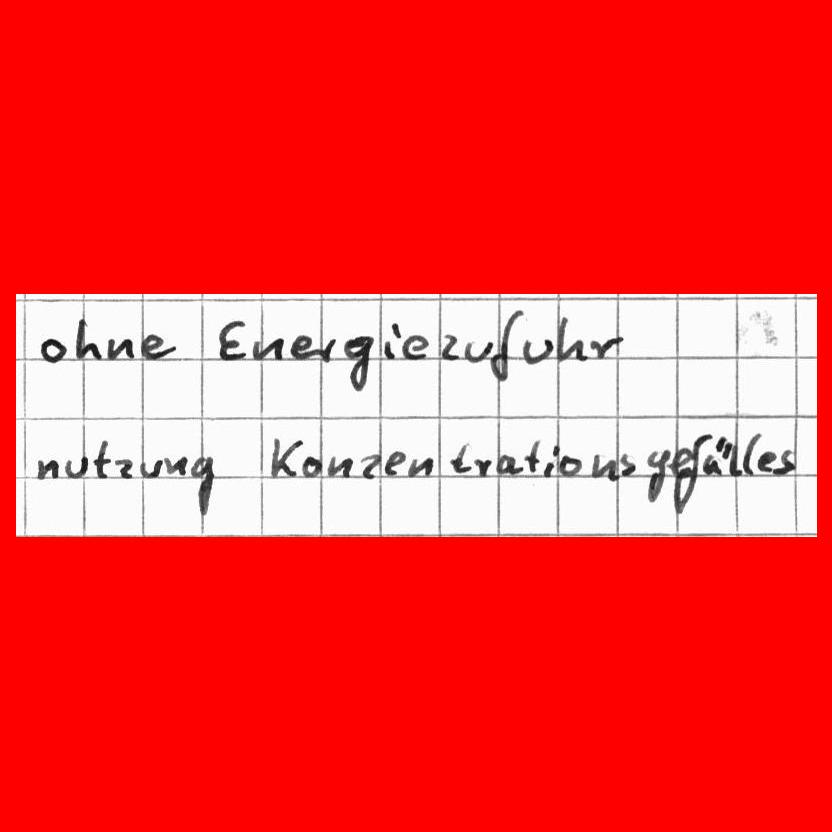 ohne Energiezufuhr
nutzung Konzentrationsgefälles